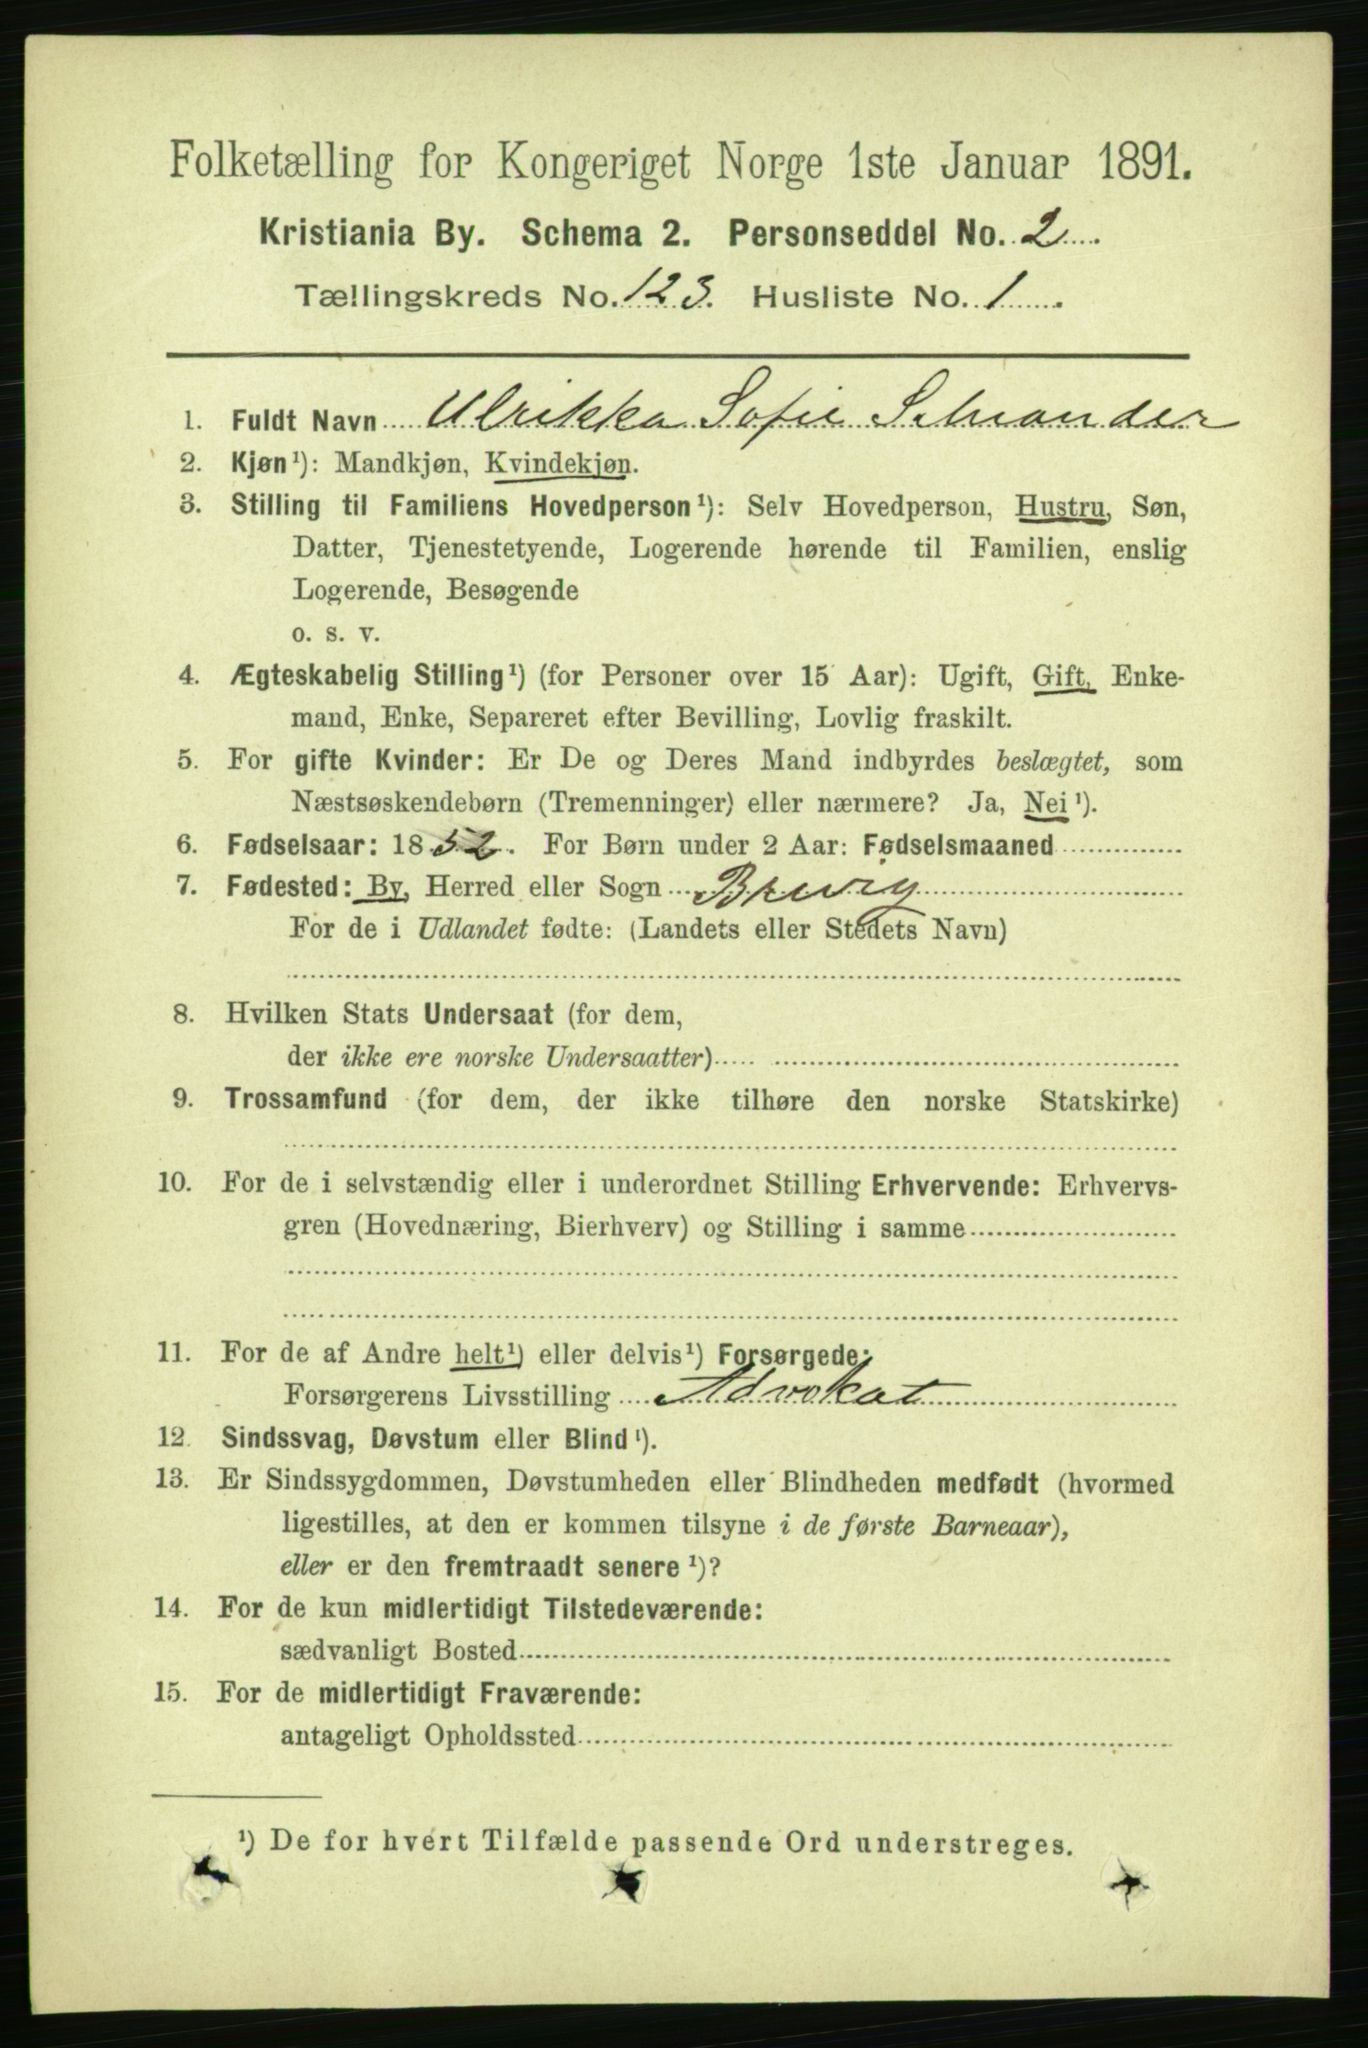 Folketælling for Kongeriget Norge 1ste Januar 1891.
Kristiania By. Schema 2. Personseddel No. 2
Tællingskreds No. 123. Husliste No. 1
1. Fuldt Navn Ulrikka Sofie
2. Kjøn¹): Mandkjøn, Kvindekjøn.
3. Stilling til Familiens Hovedperson¹): Selv Hovedperson, Hustru, Søn,
Datter, Tjenestetyende, Logerende hørende til Familien, enslig
Logerende, Besøgende
o. s. v.
4. Ægteskabelig Stilling¹) (for Personer over 15 Aar): Ugift, Gift, Enke-
mand, Enke, Separeret efter Bevilling, Lovlig fraskilt.
5. For gifte Kvinder: Er De og Deres Mand indbyrdes beslægtet, som
Næstsøskendebørn (Tremenninger) eller nærmere? Ja, Nei¹).
6. Fødselsaar: 1852. For Børn under 2 Aar: Fødselsmaaned
7. Fødested: By, Herred eller Sogn Brevig
For de i Udlandet fødte: (Landets eller Stedets Navn)
8. Hvilken Stats Undersaat (for dem,
der ikke ere norske Undersaatter)
9. Trossamfund (for dem, der ikke tilhøre den norske Statskirke)
10. For de i selvstændig eller i underordnet Stilling Erhvervende: Erhvervs-
gren (Hovednæring, Bierhverv) og Stilling i samme
11. For de af Andre helt¹) eller delvis¹) Forsørgede:
Forsørgerens Livsstilling Advokat
12. Sindssvag, Døvstum eller Blind¹).
13. Er Sindssygdommen, Døvstumheden eller Blindheden medfødt (hvormed
ligestilles, at den er kommen tilsyne i de første Barneaar),
eller er den fremtraadt senere¹)?
14. For de kun midlertidigt Tilstedeværende:
sædvanligt Bosted
15. For de midlertidigt Fraværende:
antageligt Opholdssted
¹) De for hvert Tilfælde passende Ord understreges.